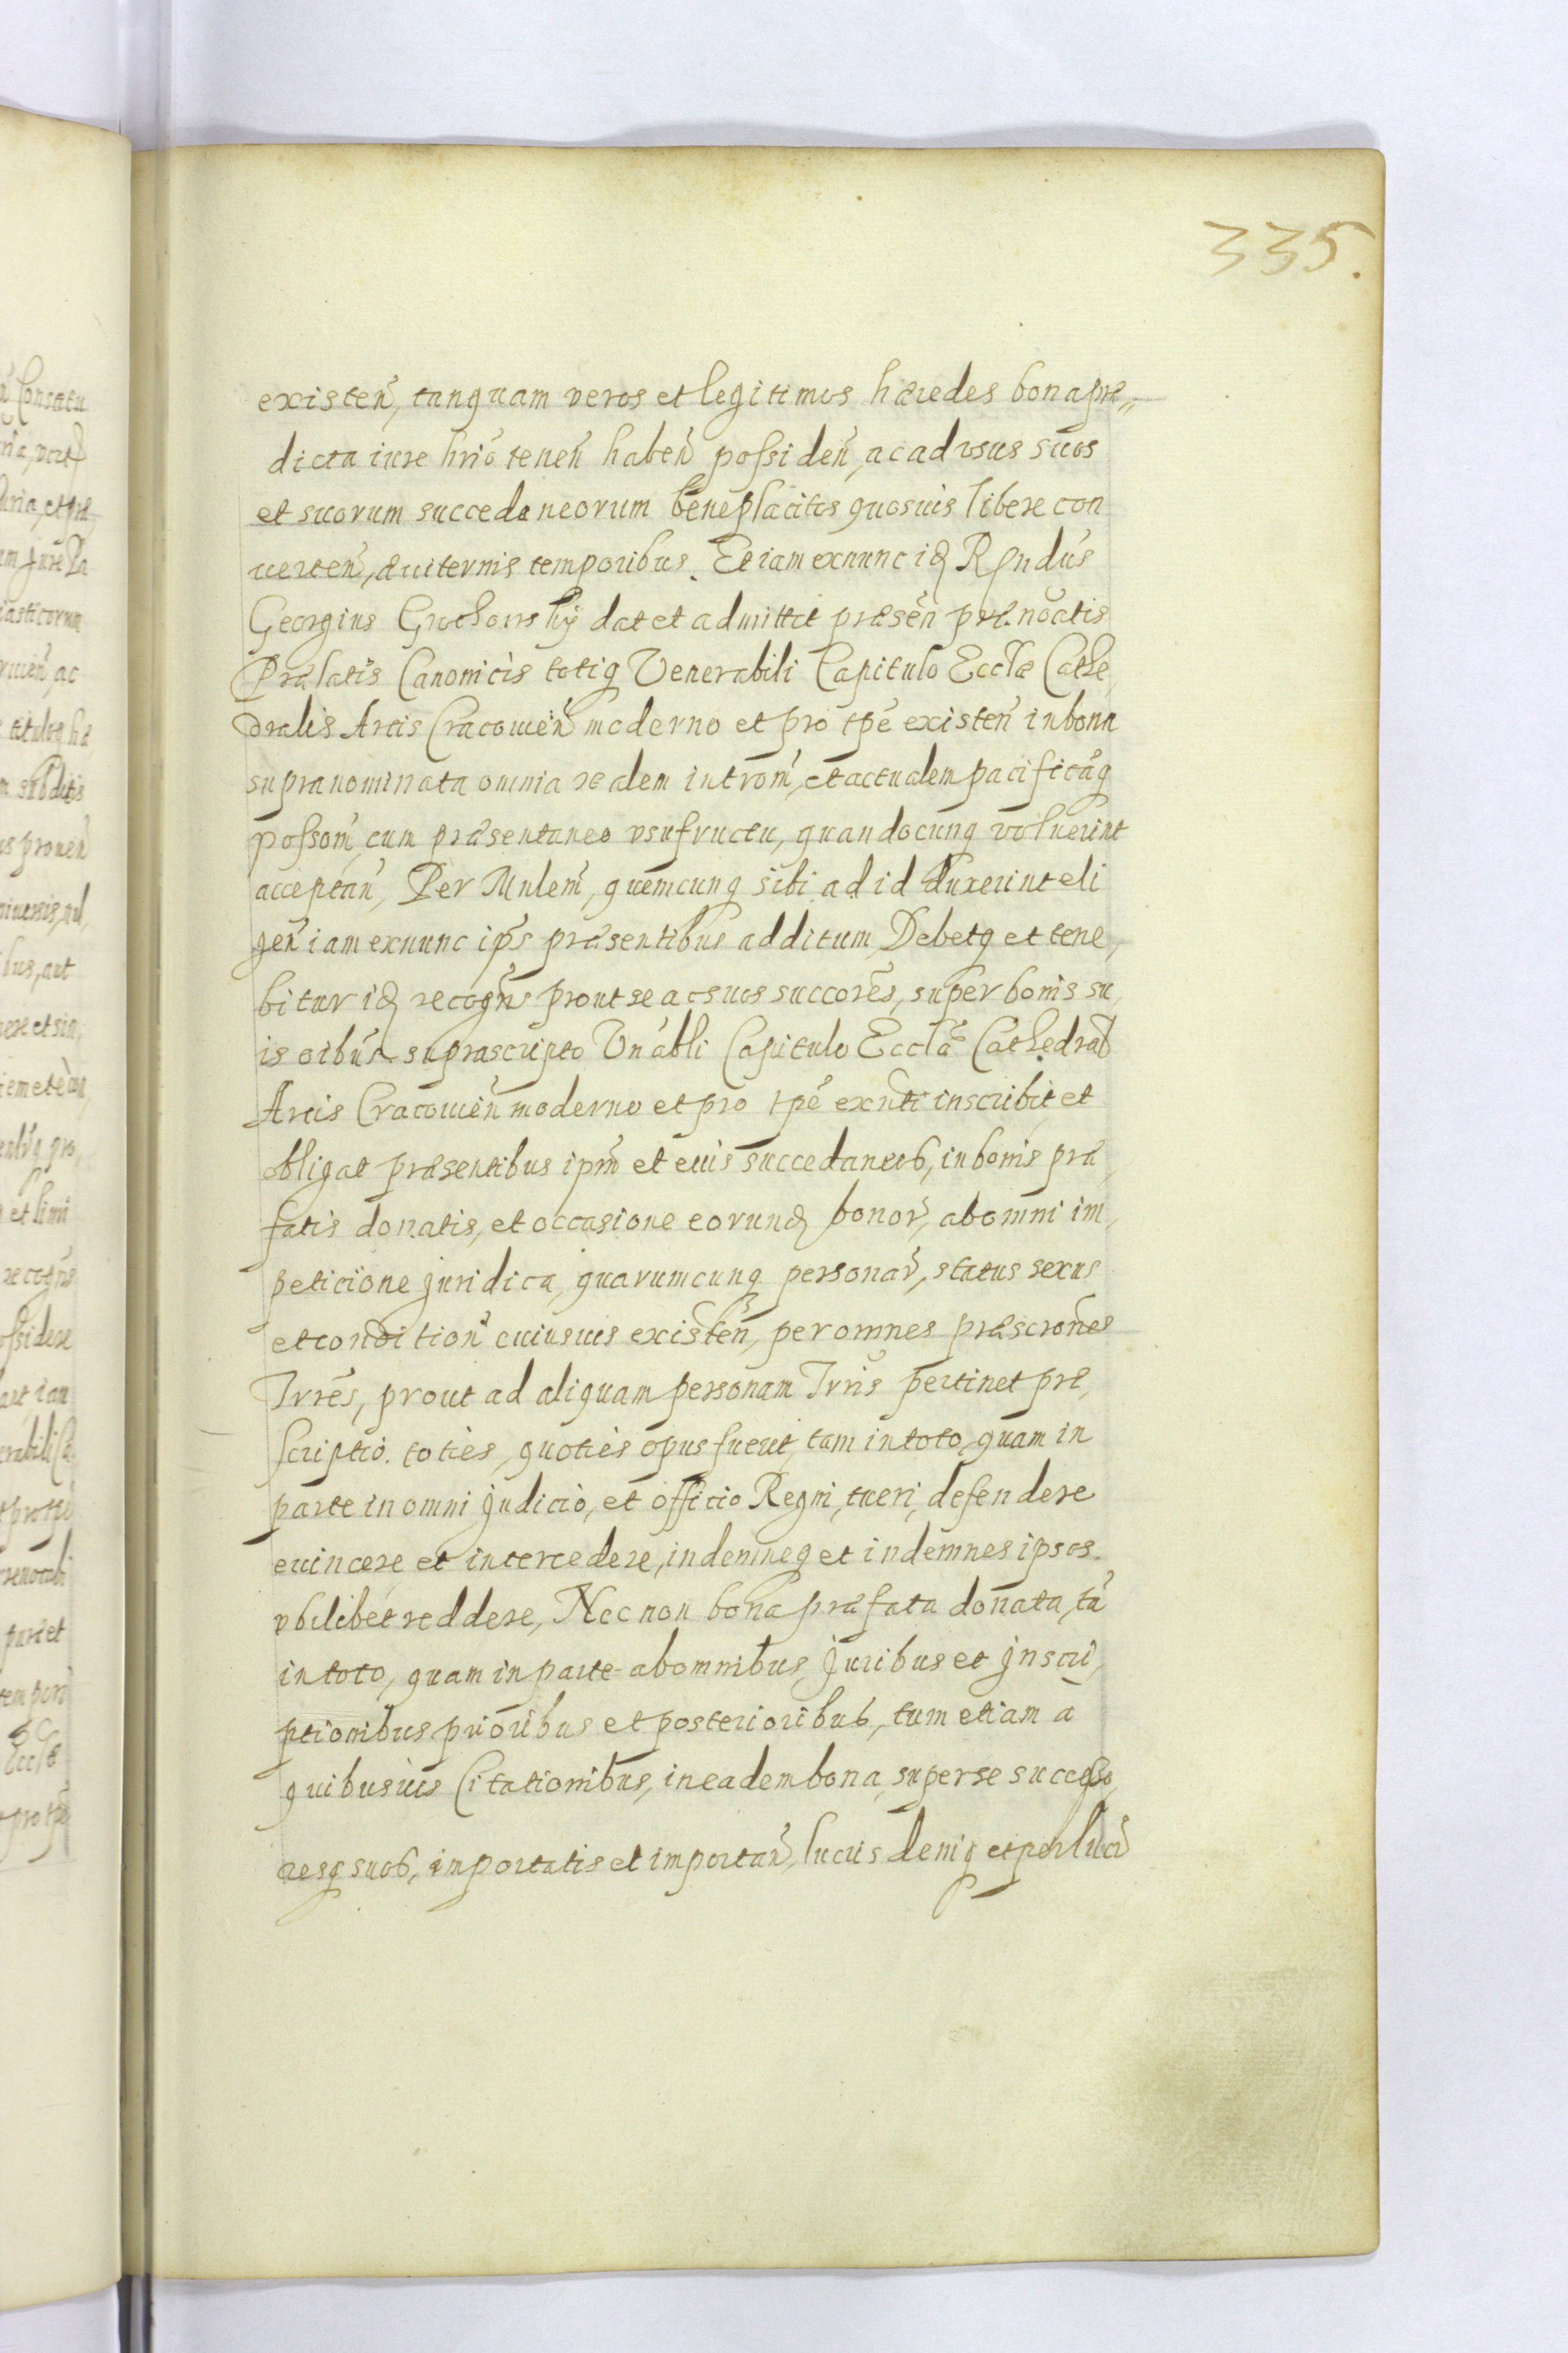 335.
existen̄, tanquam veros et legitimos hæredes bona præ„
dicta iure hriō tenen̄ haben̄ possiden̄, ac ad vsus suos
et suorum succedaneorum beneplacitos quosuis libere con
uerten̄, æuiternis temporibus. Et iam exnunc idē Rn̄dus
Georgius Grochowsky dat et admittit præsen̄ prænoātis
Prælatis Canonicis totiq Venerabili Capitulo Ecclæ Cathe,
dralis Arcis Cracouien̄ moderno et pro tpē existen̄ in bona
supranominata omnia realem introm̄, et actualem pacificāq
possom̄ cum præsentaneo vsufructu, quandocunq voluerint
acceptan̄, Per Mnlem̄, quemcunq sibi ad id duxerint eli
gen̄ iam exnunc ip̄s præsentibus additum, Debetq et tene,
bitur idē recogn̄s prout se ac suos succorēs, super bonis su,
is oībus suprascripto Vnābli Capitulo Ecclæ Cathedral
Arcis Cracouien̄ moderno et pro tpē exn̄ti inscribit et
obligat præsentibus ipm̄ et euis succedaneos, in bonis præ,
fatis donatis, et occasione eorundē bonor̄, ab omni im,
peticione juridica, quarumcunq personar̄, status sexus
et condition̄ cuiusuis existen̄, per omnes præscrōnes
Trrēs, prout ad aliquam personam Trris pertinet præ,
scriptio. toties, quoties opus fuerit, tam in toto, quam in
parte in omni judicio, et officio Regni, tueri, defendere
euincere et intercedere, indemneq et indemnes ipsos
vbilibet reddere, Nec non bona præfata donata, tā
in toto, quam in parte ab omnibus, Juribus et Jnscri,
ptionibus prioribus et posterioribus, tum etiam a
quibusuis Citationibus, in eadem bona, super se successo,
resq suos, importatis et importan̄, lucris deniq et perlucr̄